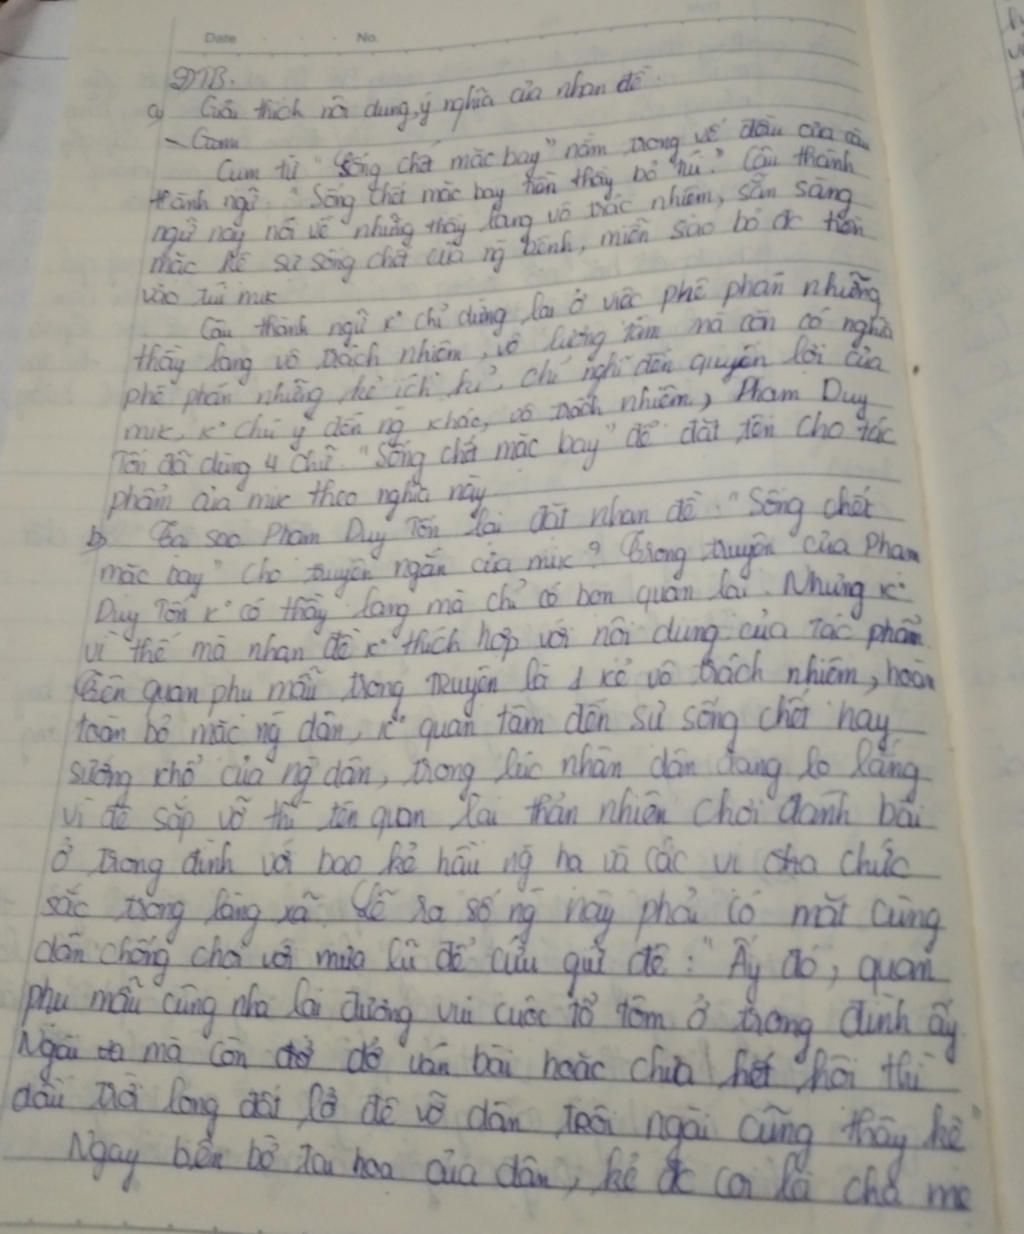 Date No.
ĐTB.
a) Giải thích nội dung, ý nghĩa của nhan đề.
- Cụm
Cụm từ "Sống chết mặc bay" nằm trong vế đầu của câu
thành ngữ: "Sống chết mặc bay tiền thầy bỏ túi." Câu thành
ngữ này nói về những thầy lang vô trác nhiệm, sẵn sàng
mặc kệ sự sống chết của ng bệnh, miễn sao bỏ đc tiền
vào túi mk
Câu thành ngữ k° chỉ dừng lại ở việc phê phán những
thầy lang vô trách nhiệm, vô lương tâm mà còn có nghĩa
phê phán những kẻ ích kỉ, chỉ nghĩ đến quyền lợi của
mk, k° chú ý đến ng khác, vô trách nhiệm, Phạm Duy
Tốn đã dùng 4 chữ "Sống chết mặc bay" để đặt tên cho tác
phẩm của mk theo nghĩa này
b) Tại sao Phạm Duy Tốn lại đặt nhan đề: "Sống chết
mặc bay" cho truyện ngắn của mk? Trong truyện của Phạm
Duy Tốn k° có thầy lang mà chỉ có bọn quan lại. Nhưng k°
vì thế mà nhan đề k° thích hợp với nội dung của tác phẩm.
Tên quan phụ mẫu trong truyện là 1 kẻ vô trách nhiệm, hoàn
toàn bỏ mặc ng dân, k° quan tâm đến sự sống chết hay
sướng khổ của ng dân, trong lúc nhân dân đang lo lắng
vì đê sắp vỡ thì tên quan lại thản nhiên chơi đánh bài
ở trong đình với bao kẻ hầu ng hạ và các vị chức
sắc trong làng xã. Lẽ ra số ng này phải có mặt cùng
dân chống chọi với mưa lũ để cứu giữ đê: "Ấy đó, quan
phụ mẫu cùng nha lại đương vui cuộc tổ tôm ở trong đình ấy.
Ngài mà còn dở ván bài hoặc chưa hết hội thì
dầu trời long đất lở đê vỡ dân trôi ngài cũng thây kệ"
Ngay bên bờ tai hoạ của dân, kẻ đc coi là cha mẹ